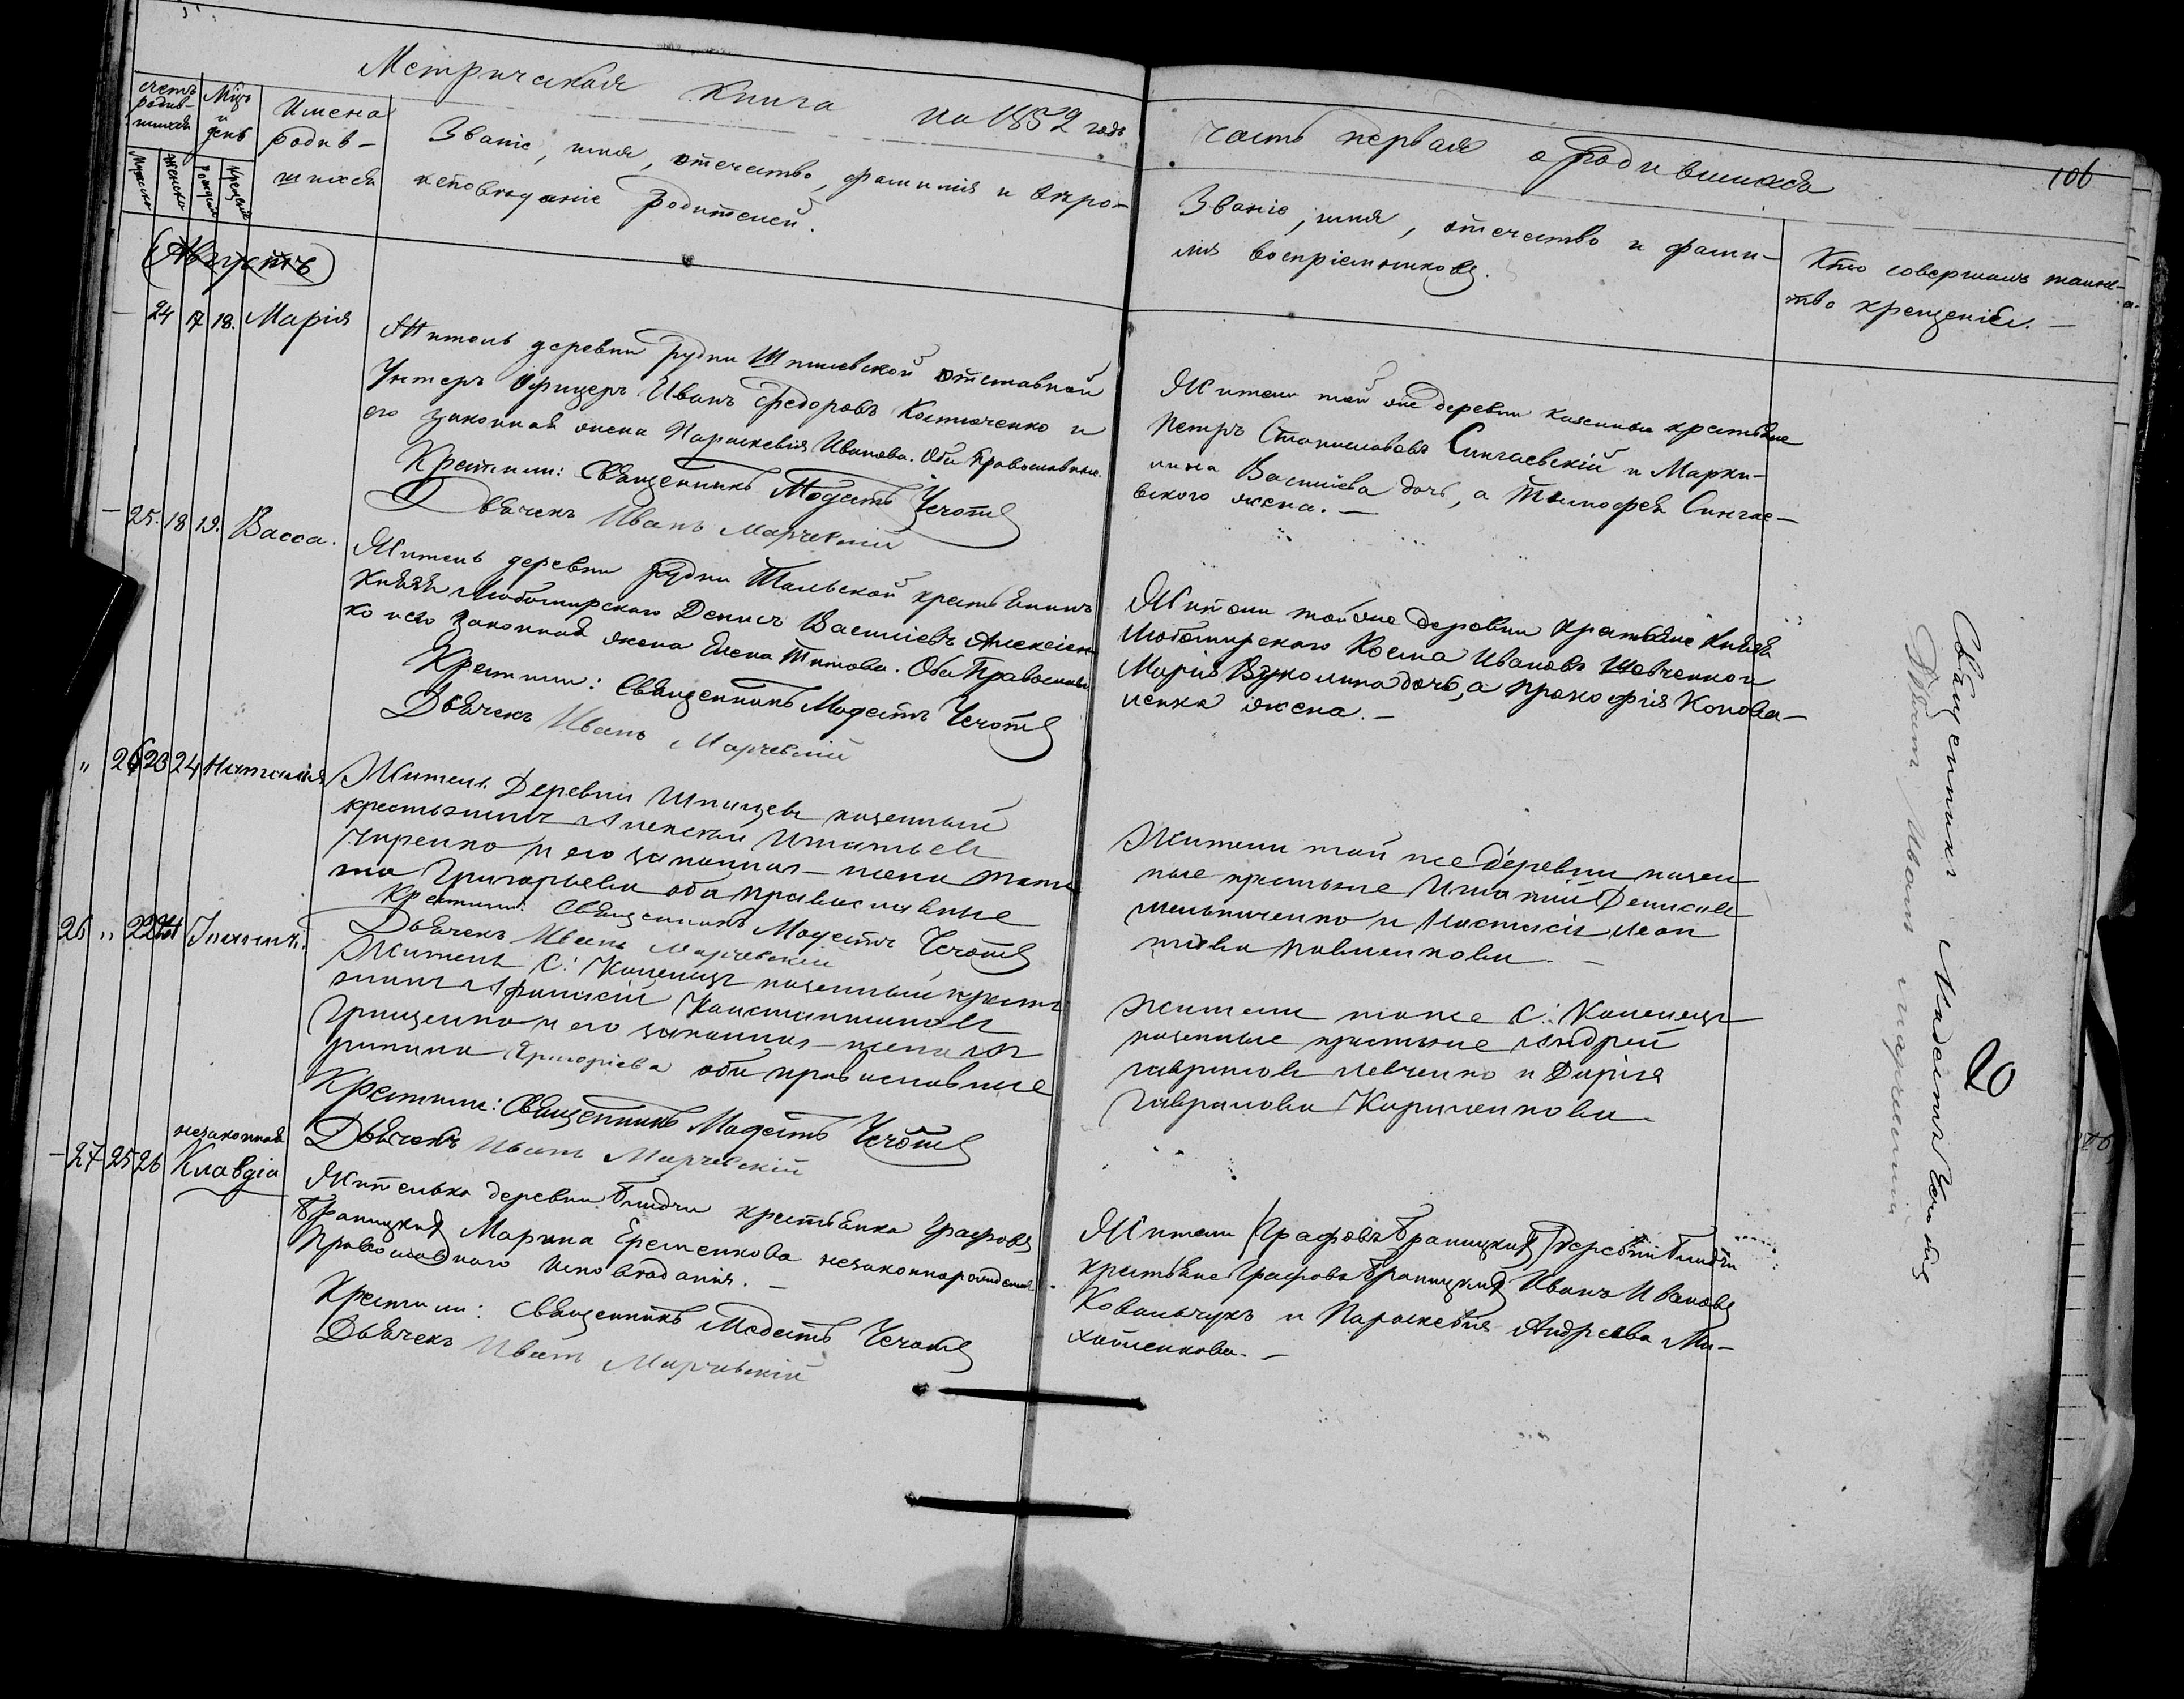 Метрическая книга на 1852 годъ
часть первая о родившихся
106
счетъ родив-шихся
Мцъ и день
Имена родив-шихся
Званіе, имя, отечество, фамилія и вѣро-
исповѣданіе родителей.
Званіе, имя, отечество и фами-
лія воспріемниковъ.
Кто совершалъ таинс-
тво крещенія. —
Мужеска
Женска
Рожденія
Крещенія
(Августъ)
— 24 17 18. Марія
Житель деревни Рудни Шпилевской отставной
Унтеръ Офицеръ Иванъ Федоровъ Костюченко и
его законная жена Параскевія Иванова. Оба Православные.
Крестили: Священникъ Модестъ Чечотъ
Дьячекъ Иванъ Марчевскій
Жители той же деревни казенные крестьяне
Петръ Станиславовъ Сингаевскій и Марки-
Васильева дочь, а Тимофея Сингае-
вского жена. —
— 25. 18 19. Васса.
Житель деревни Рудни Тальской крестьянинъ
Князя Любомирскаго Денисъ Васильевъ Алексѣен-
ко и его законная жена Елена Титова. Оба Православные
Крестили: Священникъ Модестъ Чечотъ
Дьячекъ Иванъ Марчевскій
Жители той же деревни крестьяне Князя
Любомирскаго Косма Ивановъ Шевченко и
Марія дочь, а Прокофія Конова-
ленка жена. —
" 26 23 24 Наталія
Житель Деревни казенный
крестьянинъ Алексѣй Игнатьевъ
и его законная жена Татья
на Григорьева оба православные
Крестили: Священникъ Модестъ Чечотъ
Дьячекъ Иванъ Марчевскій
Жители той же Деревни казен
ные крестьяне Игнатій Денисовъ
Мельниченко и Настасія Леон
тьева Павленкова. —
26 " 22
Житель С: казенный кресть
янинъ Афанасій Константиновъ
Грищенко и его законная жена
Григоріева оба православные
Крестили: Священникъ Модестъ Чечотъ
Дьячекъ Иванъ Марчевскій
Жители того же С:
казенные крестьяне Андрей
Гавриловъ Левченко и Дарія
Гаврилова Кириленкова
— 27 25 26 незаконная Клавдіа
Жителька деревни крестьянка Графовъ
Браницкихъ Марина Еременкова незаконнорожденная
Православнаго Исповѣданія. —
Крестили: Священникъ Модестъ Чечотъ
Дьячекъ Иванъ Марчевскій
Жители (Графовъ Браницкихъ) деревни
крестьяне Графовъ Браницкихъ Иванъ Ивановъ
Ковальчукъ и Параскевія Андреева Ми-
хайленкова. —
Священникъ Модестъ Чечотъ
Дьячекъ Иванъ Марчевскій